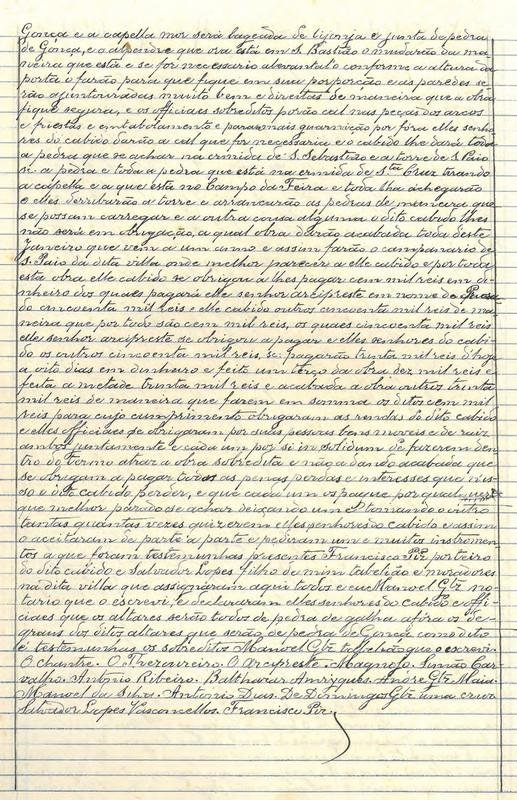 Gonça e a capella mor será lageada de tijonja e junta da pedra
de Gonça, e o alpendre que ora está em S. Bastião o mudarão da ma-
neira que está e se for necessario alevantal o conforme a altura da
porta o farão para que fique em sua porporção e as paredes se
rão ajunturiadas muito bem e direitas de maneira que a obra
fique segura, e os officiaes sobreditos porão cal nas peças dos arcos
e friestas e entabolamento e para o mais guarnição por fóra elles senho
res do cabido darão a cal que for necessaria e o cabido lhe dará toda
a pedra que se achar na ermida de S. Sebastião e a torre de S. Paio
si. a pedra e toda a pedra que está na ermida de S.ta Cruz tirando
a capella e a que está no Campo da Feira e toda lha achegarão
e elles derribarão a torre e arrancarão as pedras de maneira que
se possam carregar e a outra cousa alguma o dito cabido lhes
não será em obrigação, a qual obra darão acabada toda deste
Janeiro que vem a um anno e assim farão o campanario de
S. Paio da dita villa onde melhor parecer a elle cabido e por toda
esta obra elle cabido se obrigou a lhes pagar cem mil reis em di-
nheiro dos quaes pagará elle senhor arcipreste em nome de
do cincoenta mil reis e elle cabido outros cincoenta mil reis de ma
neira que por todo são cem mil reis, os quaes cincoenta mil reis
elle senhor arcipreste se obrigou a pagar e elles senhores do cabi-
do os outros cincoenta mil reis, sc. pagarão trinta mil reis d'hoje
a oito dias em dinheiro e feito um terço da obra dez mil reis e
feita a metade trinta mil reis e acabada a obra outros trinta
mil reis de maneira que fazem em somma os ditos cem mil
reis para cujo cumprimento obrigaram as rendas do dito cabido
e elles officiaes se obrigaram por suas pessoas bens moveis e de raiz
ambos juntamente e cada um por si in solidum de fazerem den
tro do termo atraz a obra sobredita e não a dando acabada que
se obrigam a pagar todas as penas perdas e interesses que nis-
so o dito cabido perder, e que cada um os pague por qual
que melhor parado se achar deixando um e tomando o outro
tantas quantas vezes quizerem elles senhores do cabido e assim
o aceitaram de parte a parte e pediram um e muitos instromen
tos a que foram testemunhas presentes Francisco Piz porteiro
do dito cabido e Salvador Lopes filho de mim tabelião e moradores
na dita villa que assignaram aqui todos e eu Manoel Glz no-
tario que o escrevi, e declararam elles senhores do cabido e offi-
ciaes que os altares serão todos de pedra de galha afóra os de-
graus dos ditos altares que serão de pedra de Gonça como dito
é testemunhas os sobreditos Manoel Glz tabelião que o escrevi.
O chantre. O Thezoureiro. O Arcipreste. Magnoto. Simão Car-
valho. Antonio Ribeiro. Balthazar Anriques. André Glz Maia.
Manoel da Silva. Antonio Dias. De Domingos Glz uma cruz.
Salvador Lopes Vasconcellos. Francisco Piz.